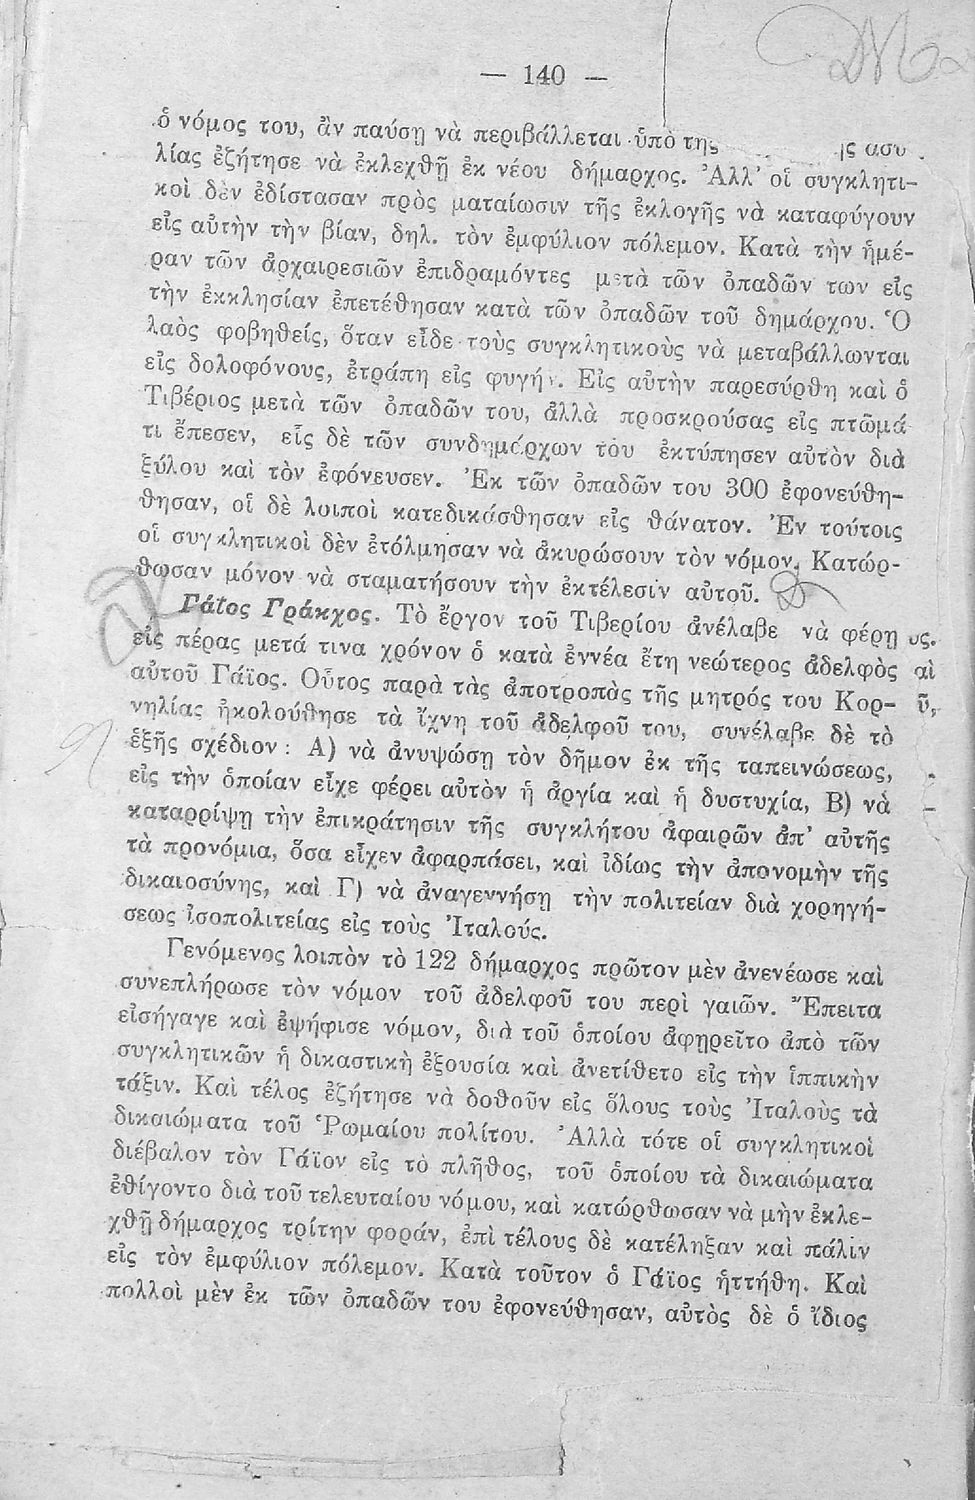 — 140 —
ὁ νόμος του, ἂν παύσῃ νὰ περιβάλλεται ὑπὸ της ης ασυ
λίας ἐζήτησε νὰ ἐκλεχθῇ ἐκ νέου δήμαρχος. Ἀλλ' οἱ συγκλητι-
κοὶ δὲν ἐδίστασαν πρὸς ματαίωσιν τῆς ἐκλογῆς νὰ καταφύγουν
εἰς αὐτὴν τὴν βίαν, δηλ. τὸν ἐμφύλιον πόλεμον. Κατὰ τὴν ἡμέ-
ραν τῶν ἀρχαιρεσιῶν ἐπιδραμόντες μετὰ τῶν ὀπαδῶν των εἰς
τὴν ἐκκλησίαν ἐπετέθησαν κατὰ τῶν ὀπαδῶν τοῦ δημάρχου. Ὁ
λαὸς φοβηθείς, ὅταν εἶδε τοὺς συγκλητικοὺς νὰ μεταβάλλωνται
εἰς δολοφόνους, ἐτράπη εἰς φυγήν. Εἰς αὐτὴν παρεσύρθη καὶ ὁ
Τιβέριος μετὰ τῶν ὀπαδῶν του, ἀλλὰ προσκρούσας εἰς πτῶμά
τι ἔπεσεν, εἷς δὲ τῶν συνδημάρχων του ἐκτύπησεν αὐτὸν διὰ
ξύλου καὶ τὸν ἐφόνευσεν. Ἐκ τῶν ὀπαδῶν του 300 ἐφονεύθη-
θησαν, οἱ δὲ λοιποὶ κατεδικάσθησαν εἰς θάνατον. Ἐν τούτοις
οἱ συγκλητικοὶ δὲν ἐτόλμησαν νὰ ἀκυρώσουν τὸν νόμον. Κατώρ-
θωσαν μόνον νὰ σταματήσουν τὴν ἐκτέλεσιν αὐτοῦ.
Γάϊος Γράκχος. Τὸ ἔργον τοῦ Τιβερίου ἀνέλαβε νὰ φέρῃ υς.
εἰς πέρας μετά τινα χρόνον ὁ κατὰ ἐννέα ἔτη νεώτερος ἀδελφὸς αἱ
αὐτοῦ Γάϊος. Οὗτος παρὰ τὰς ἀποτροπὰς τῆς μητρός του Κορ- ῦ,
νηλίας ἠκολούθησε τὰ ἴχνη τοῦ ἀδελφοῦ του, συνέλαβε δὲ τὸ
ἑξῆς σχέδιον: Α) νὰ ἀνυψώσῃ τὸν δῆμον ἐκ τῆς ταπεινώσεως,
εἰς τὴν ὁποίαν εἶχε φέρει αὐτὸν ἡ ἀργία καὶ ἡ δυστυχία, Β) νὰ
καταρρίψῃ τὴν ἐπικράτησιν τῆς συγκλήτου ἀφαιρῶν ἀπ' αὐτῆς
τὰ προνόμια, ὅσα εἶχεν ἀφαρπάσει, καὶ ἰδίως τὴν ἀπονομὴν τῆς
δικαιοσύνης, καὶ Γ) νὰ ἀναγεννήσῃ τὴν πολιτείαν διὰ χορηγή-
σεως ἰσοπολιτείας εἰς τοὺς Ἰταλούς.
Γενόμενος λοιπὸν τὸ 122 δήμαρχος πρῶτον μὲν ἀνενέωσε καὶ
συνεπλήρωσε τὸν νόμον τοῦ ἀδελφοῦ του περὶ γαιῶν. Ἔπειτα
εἰσήγαγε καὶ ἐψήφισε νόμον, διὰ τοῦ ὁποίου ἀφῃρεῖτο ἀπὸ τῶν
συγκλητικῶν ἡ δικαστικὴ ἐξουσία καὶ ἀνετίθετο εἰς τὴν ἱππικὴν
τάξιν. Καὶ τέλος ἐζήτησε νὰ δοθοῦν εἰς ὅλους τοὺς Ἰταλοὺς τὰ
δικαιώματα τοῦ Ῥωμαίου πολίτου. Ἀλλὰ τότε οἱ συγκλητικοὶ
διέβαλον τὸν Γάϊον εἰς τὸ πλῆθος, τοῦ ὁποίου τὰ δικαιώματα
ἐθίγοντο διὰ τοῦ τελευταίου νόμου, καὶ κατώρθωσαν νὰ μὴν ἐκλε-
χθῇ δήμαρχος τρίτην φοράν, ἐπὶ τέλους δὲ κατέληξαν καὶ πάλιν
εἰς τὸν ἐμφύλιον πόλεμον. Κατὰ τοῦτον ὁ Γάϊος ἡττήθη. Καὶ
πολλοὶ μὲν ἐκ τῶν ὀπαδῶν του ἐφονεύθησαν, αὐτὸς δὲ ὁ ἴδιος